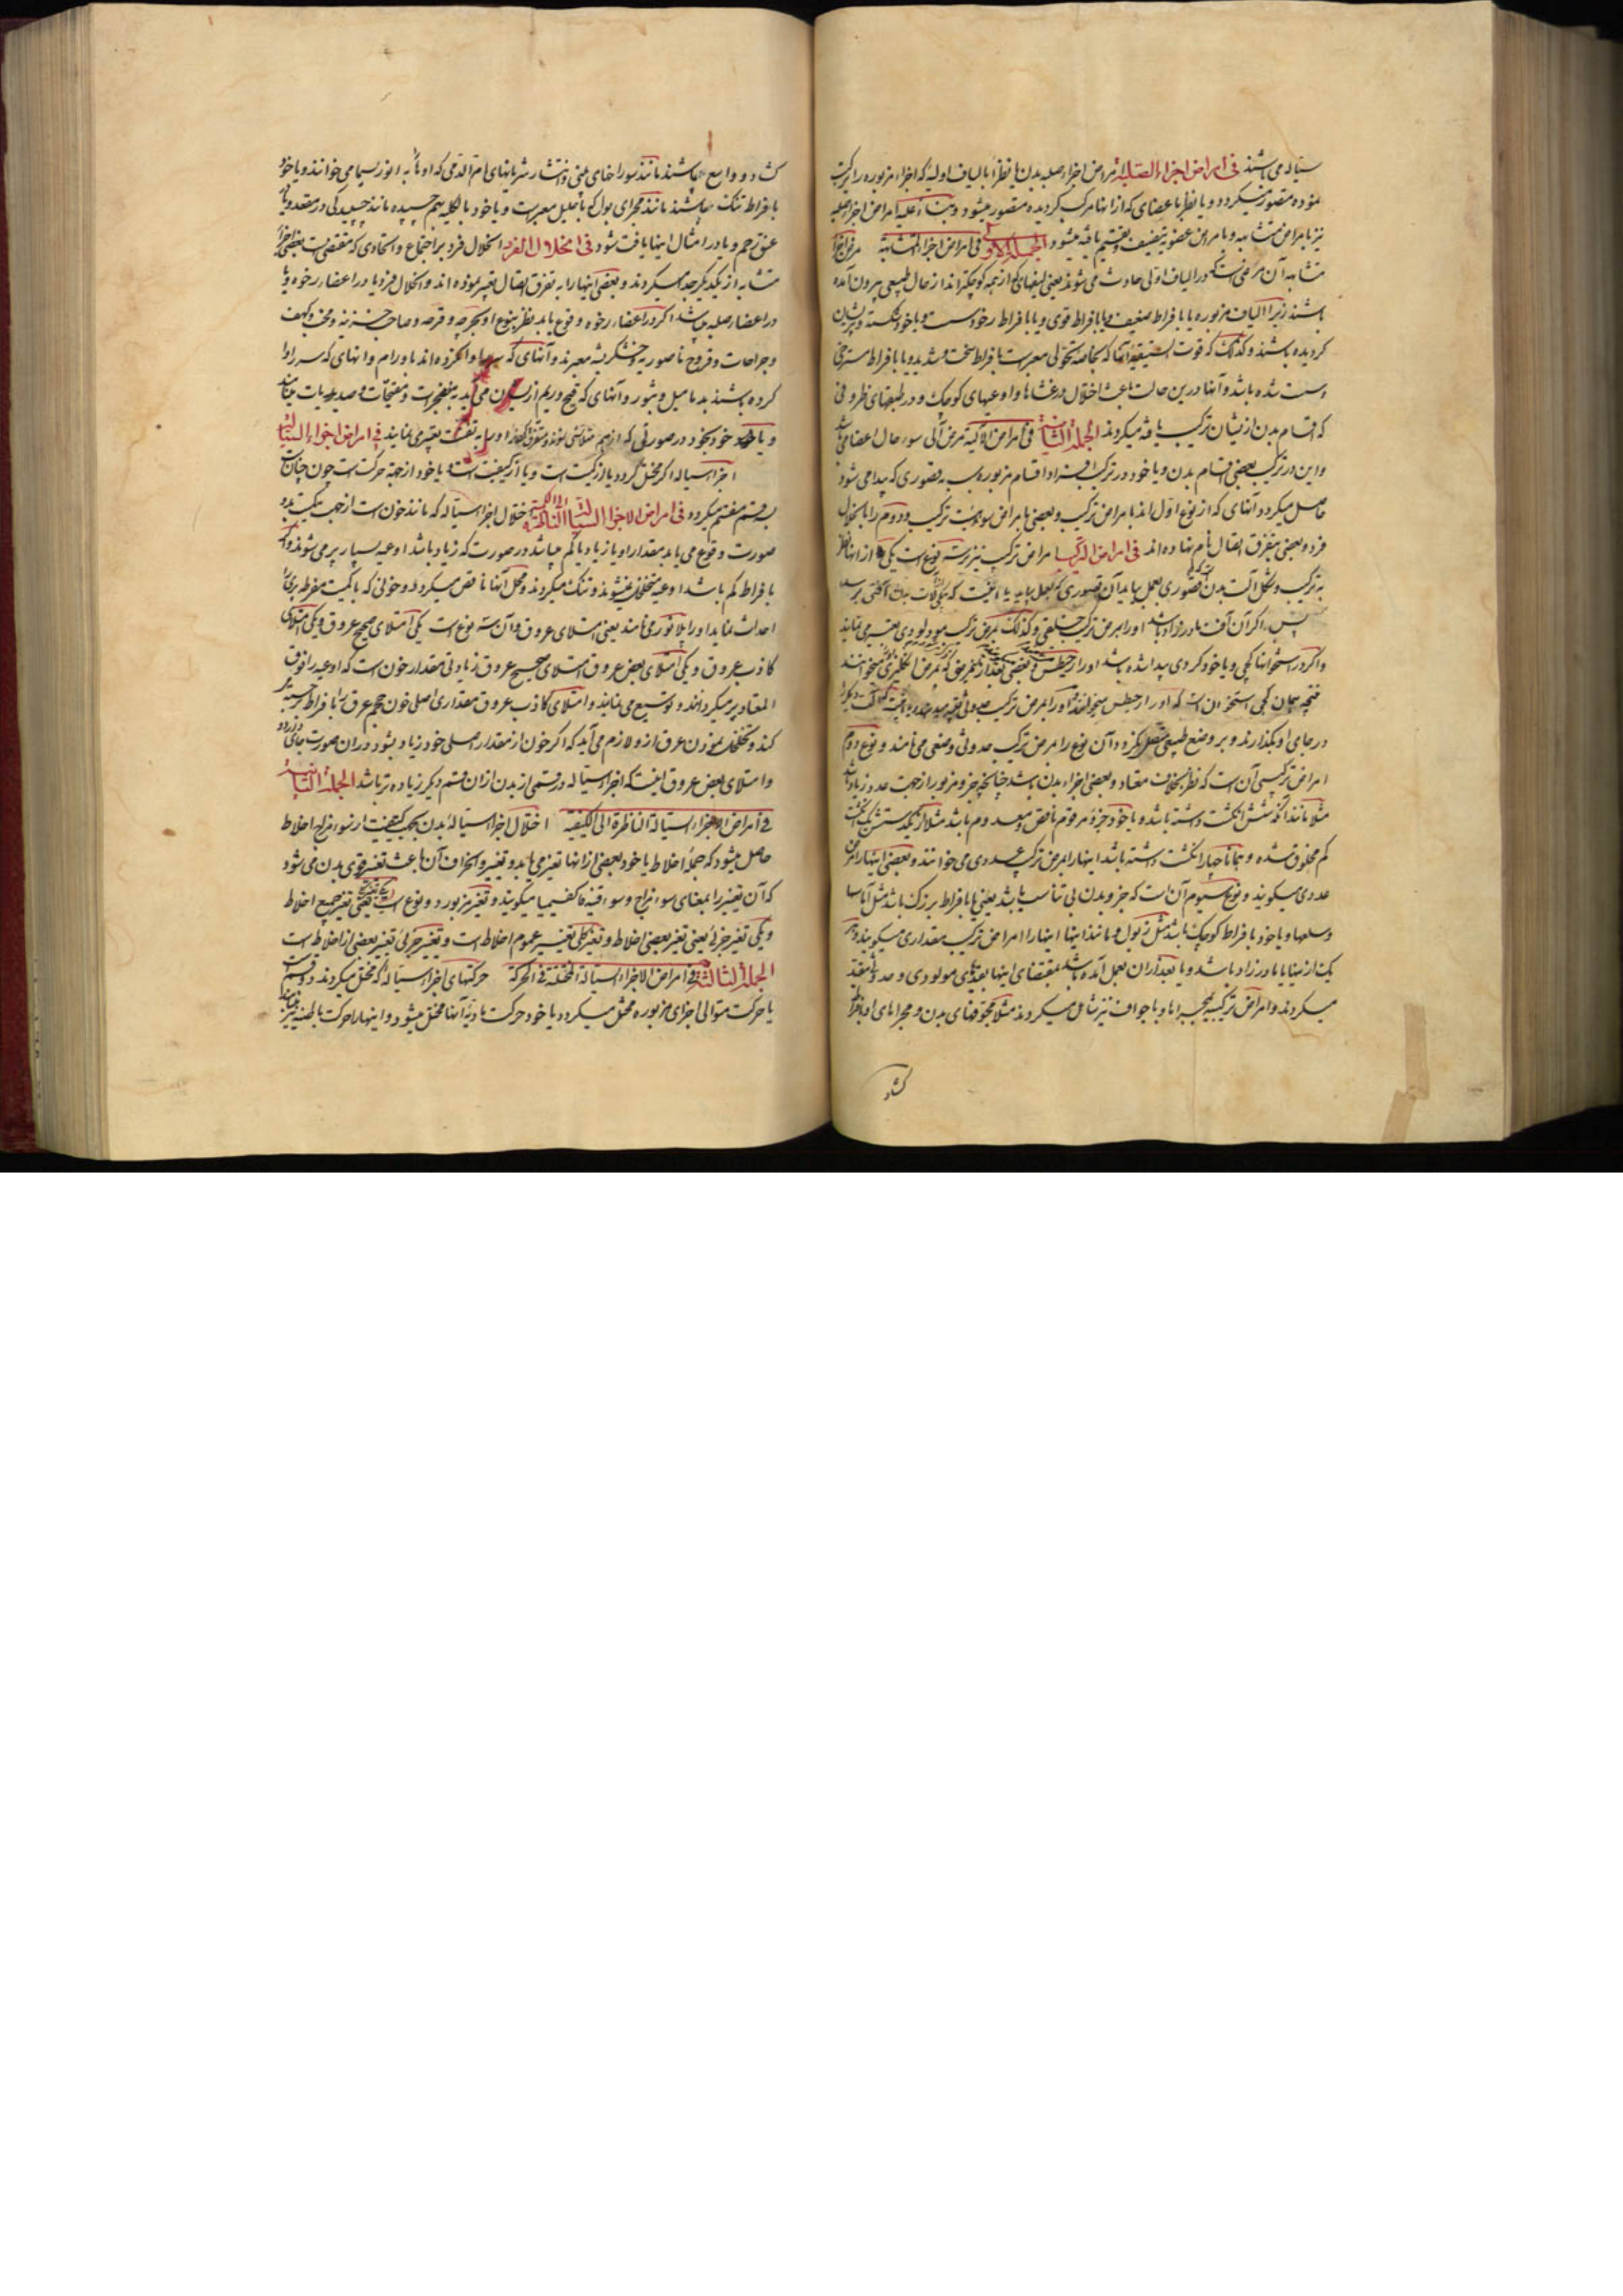 سیاله می باشند فی امراض اجزاء الصلبیه امراض اجزاء صلبه بدن یا نظراً بالیاف اولیه که اجزاء مزبوره را ترکیب
نموده متصور میگردد و یا نظر باعضای که از انها مرکب گردیده متصور میشود و بناء علیه امراض اجزاء صلبه
نیز بامراض متشابهه و بامراض عضویه تصنیف و تقسیم یافته میشود الجملة الاولی فی امراض اجزاء المتشابهة مرض اجزاء
متشابه آن مرضی است که در الیاف اولی حادث می شوند یعنی لیفهای که از همه کوچکتر اند از حال طبیعی بیرون آمده
باشند زیرا الیاف مزبوره یا بافراط ضعیف و یا بافراط قوی و یا بافراط رخو و سست و یا خود شکسته و پریشان
گردیده باشند و کذلک که قوت
و سست شده باشد و آنها درین حالت باعث اختلال در غشاها و اوعیهای کوچک و در طبقهای ظروفی
که اقسام بدن از نیشان ترکیب یافته میگردند الجملة الثانیة فی امراض الآلیة مرض آلی سوء حال اعضا می باشد
و این در ترکیب بعضی اقسام بدن و یا خود در ترکیب افراد اقسام مزبوره بسبب قصوری که پیدا می شود
حاصل میگردد آنهای که از نوع اول اند بامراض ترکیب و بعضی بامراض سوء هیئت ترکیب و دوم را بانحلال
فرد و بعضی بتفرق اتصال نام نهاده اند فی امراض الترکیب امراض ترکیب نیز سه نوع است یکی از انها نظر
به ترکیب و شکل آلت بدن قصوری بعمل بیاید آن قصوری که بعمل بیاید
پس اگر آن آفت مادرزاد باشد او را بمرض ترکیب خلقی و کذلک بمرض ترکیب مولودی تعبیر می نمایند
و اگر در استخوانها کجی و یا خود گردی پیدا شده باشد او را
در جای او بگذارند و بر وضع طبیعی متصل نگردد آن نوع را بمرض ترکیب حدوثی و ضعی می نامند و نوع دوم
امراض ترکیبی آن است که نظر بخلاف معتاد و بعضی اجزاء بدن باشد چنانچه جزء مزبور از جهت عدد زیاد باشد
مثلا مانند آنکه شش انگشت داشته باشد و یا خود جزء مرقوم ناقص و معدوم باشد مثلا از یکدست یک انگشت
کم مخلوق شده و همانا چهار انگشت داشته باشد اینها را بمرض ترکیب عددی می خوانند و بعضی اینها را مرض
عددی میگویند و نوع سیوم آن است که جزو بدن بی تناسب باشد یعنی یا بافراط بزرگ باشد مثل آماسها
و سلعها و یا خود بافراط کوچک باشد مثل ذبول و مانند اینها اینها را امراض ترکیب مقداری میگویند و هر
یک از اینها یا مادرزاد باشد و یا بعد از ان بعمل آمده باشد بمقتضای اینها بقیدهای مولودی و حدوثی مقید
میگردند و امراض ترکیبیه بمجراها و باجواف نیز شامل میگردند مثلا مجوفهای بدن و مجراهای او بافراط
کشاد
کشاد و واسع میباشند مانند سوراخای بینی و انتشار شریانهای ام الدمی که او را به انوریسما می خوانند و یا خود
بافراط تنگ میباشند مانند مجرای بول که باحلیل معبر است و یا خود بالکلیه بهم چسپیده مانند چسپیدگی در مقعد و یا
عنق رحم و یا در امثال اینها یافت شود فی انحلال الفرد انحلال فرد بر اجتماع و اتحادی که مقتضی است بعضی اجزاء
متشابه از یکدیگر جدا میگردند و بعضی اینها را به تفرق اتصال تعبیر نموده اند و انحلال فرد یا در اعضاء رخوه و یا
در اعضاء صلبه میباشد اگر در اعضاء رخوه وقوع یابد نظر بنوع او بجرحه و قرحه
و جراحات و قروح ناصوریه و خشکریشه معبرند و آنهای که سرها وا نکرده اند باورام و انهای که سر را وا
کرده باشند بدمامیل و بثور و آنهای که قیح و ریم از ایشان می آید به منفجرات و متقیحات و صدیدیات
و یا خود بخود در صورتی که از هم متلاشی شوند فی امراض اجزاء السیاله
اجزاء سیاله اگر مختل گردد یا از کمیت است و یا از کیفیت است و یا خود از جهة حرکت است چون چنان است
بسه قسم منقسم میگردد فی امراض الاجزاء السیالة الناظرة الی الکمیة اختلال اجزاء سیاله که مانند خون است از جهت کمیت بدو
صورت وقوع می یابد بمقدار او یا زیاد یا کم میباشد در صورت که زیاد باشد اوعیه بسیار پر می شوند و اگر
بافراط کم باشد اوعیه متخلخل میشوند و تنگ میگردند و حجم آنها ناقص میگردد و خونی که با کمیت مفرطه پری را
احداث نماید او را پلاتور می نامند یعنی امتلای عروق و آن سه نوع است یکی امتلای صحیح عروق و یکی امتلای
کاذب عروق و یکی امتلای بعض عروق امتلای صحیح عروق زیادتی مقدار خون است که اوعیه را فوق
المعتاد پر میگردانند و توسیع می نمایند و امتلای کاذب عروق مقداری اصلی خون حجم عرق را بافراط
کند و تخلخل نمودن عرق از و لازم می آید که اگر خون از مقدار اصلی خود زیاد بشود در ان صورت جای
و امتلای بعض عروق اینست که اجزاء سیاله در قسمی از بدن از ان قسم دیگر زیاده تر باشد الجملة الثانیة
فی امراض الاجزاء السیالة الناظرة الی الکیفیة اختلال اجزاء سیالهٔ بدن بحسب کیفیت از سوء مزاج اخلاط
حاصل میشود که جملهٔ اخلاط یا خود بعضی از انها تغیر می یابد و تغییر و انحراف آن باعث تغیر قوی بدن می شود
که آن تغییر را بمعنای سوء مزاج و سوء قنیه کاکغسیمیا میگویند و تغیر مزبور دو نوع است یکی تغیر کلی یعنی تغیر جمیع اخلاط
و یکی تغیر جزئی یعنی تغیر بعضی اخلاط و تغیر کلی تغییر عموم اخلاط است و تغییر جزئی تغییر بعضی از اخلاط است
الجملة الثالثة فی امراض الاجزاء السیالة المختلة فی الحرکة حرکتهای اجزاء سیاله که مختل میگردند دو قسم است
یا حرکت متوالی اجزای مزبوره مختل میگردد یا خود حرکت بادیهٔ آنها مختل میشود و اینها را حرکت باطنیه نیز می نامند